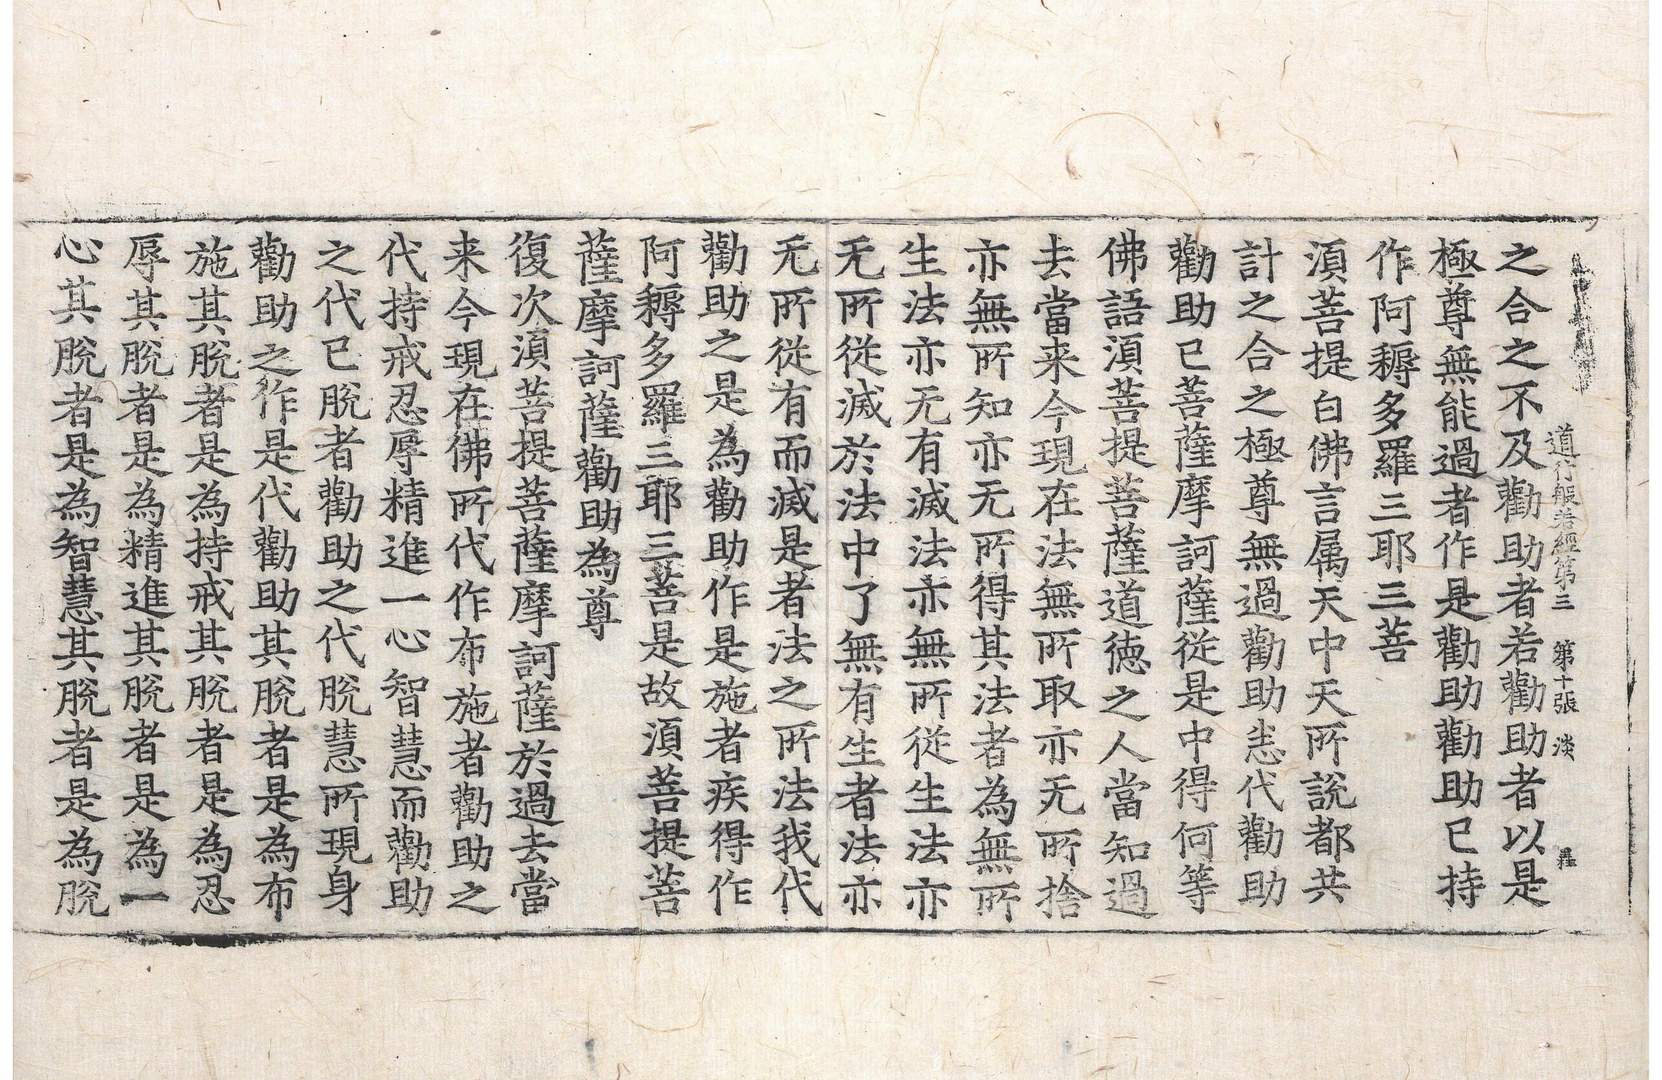 道行般若經第三 第十張 淡
之合之不及勸助者若勸助者以是
極尊無能過者作是勸助勸助已持
作阿耨多羅三耶三菩
湏菩提白佛言属天中天所說都共
計之合之極尊無過勸助恚代勸助
勸助已菩薩摩訶薩從是中得何等
佛語湏菩提菩薩道德之人當知過
去當来今現在法無所取亦无所捨
亦無所知亦无所得其法者為無所
生法亦无有滅法亦無所從生法亦
无所從滅於法中了無有生者法亦
无所從有而滅是者法之所法我代
勸助之是為勸助作是施者疾得作
阿耨多羅三耶三菩是故湏菩提菩
薩摩訶薩勸助為尊
復次湏菩提菩薩摩訶薩於過去當
来今現在佛所代作布施者勸助之
代持戒忍辱精進一心智慧而勸助
之代已脫者勸助之代脫慧所現身
勸助之作是代勸助其脫者是為布
施其脫者是為持戒其脫者是為忍
辱其脫者是為精進其脫者是為一
心其脫者是為智慧其脫者是為脫